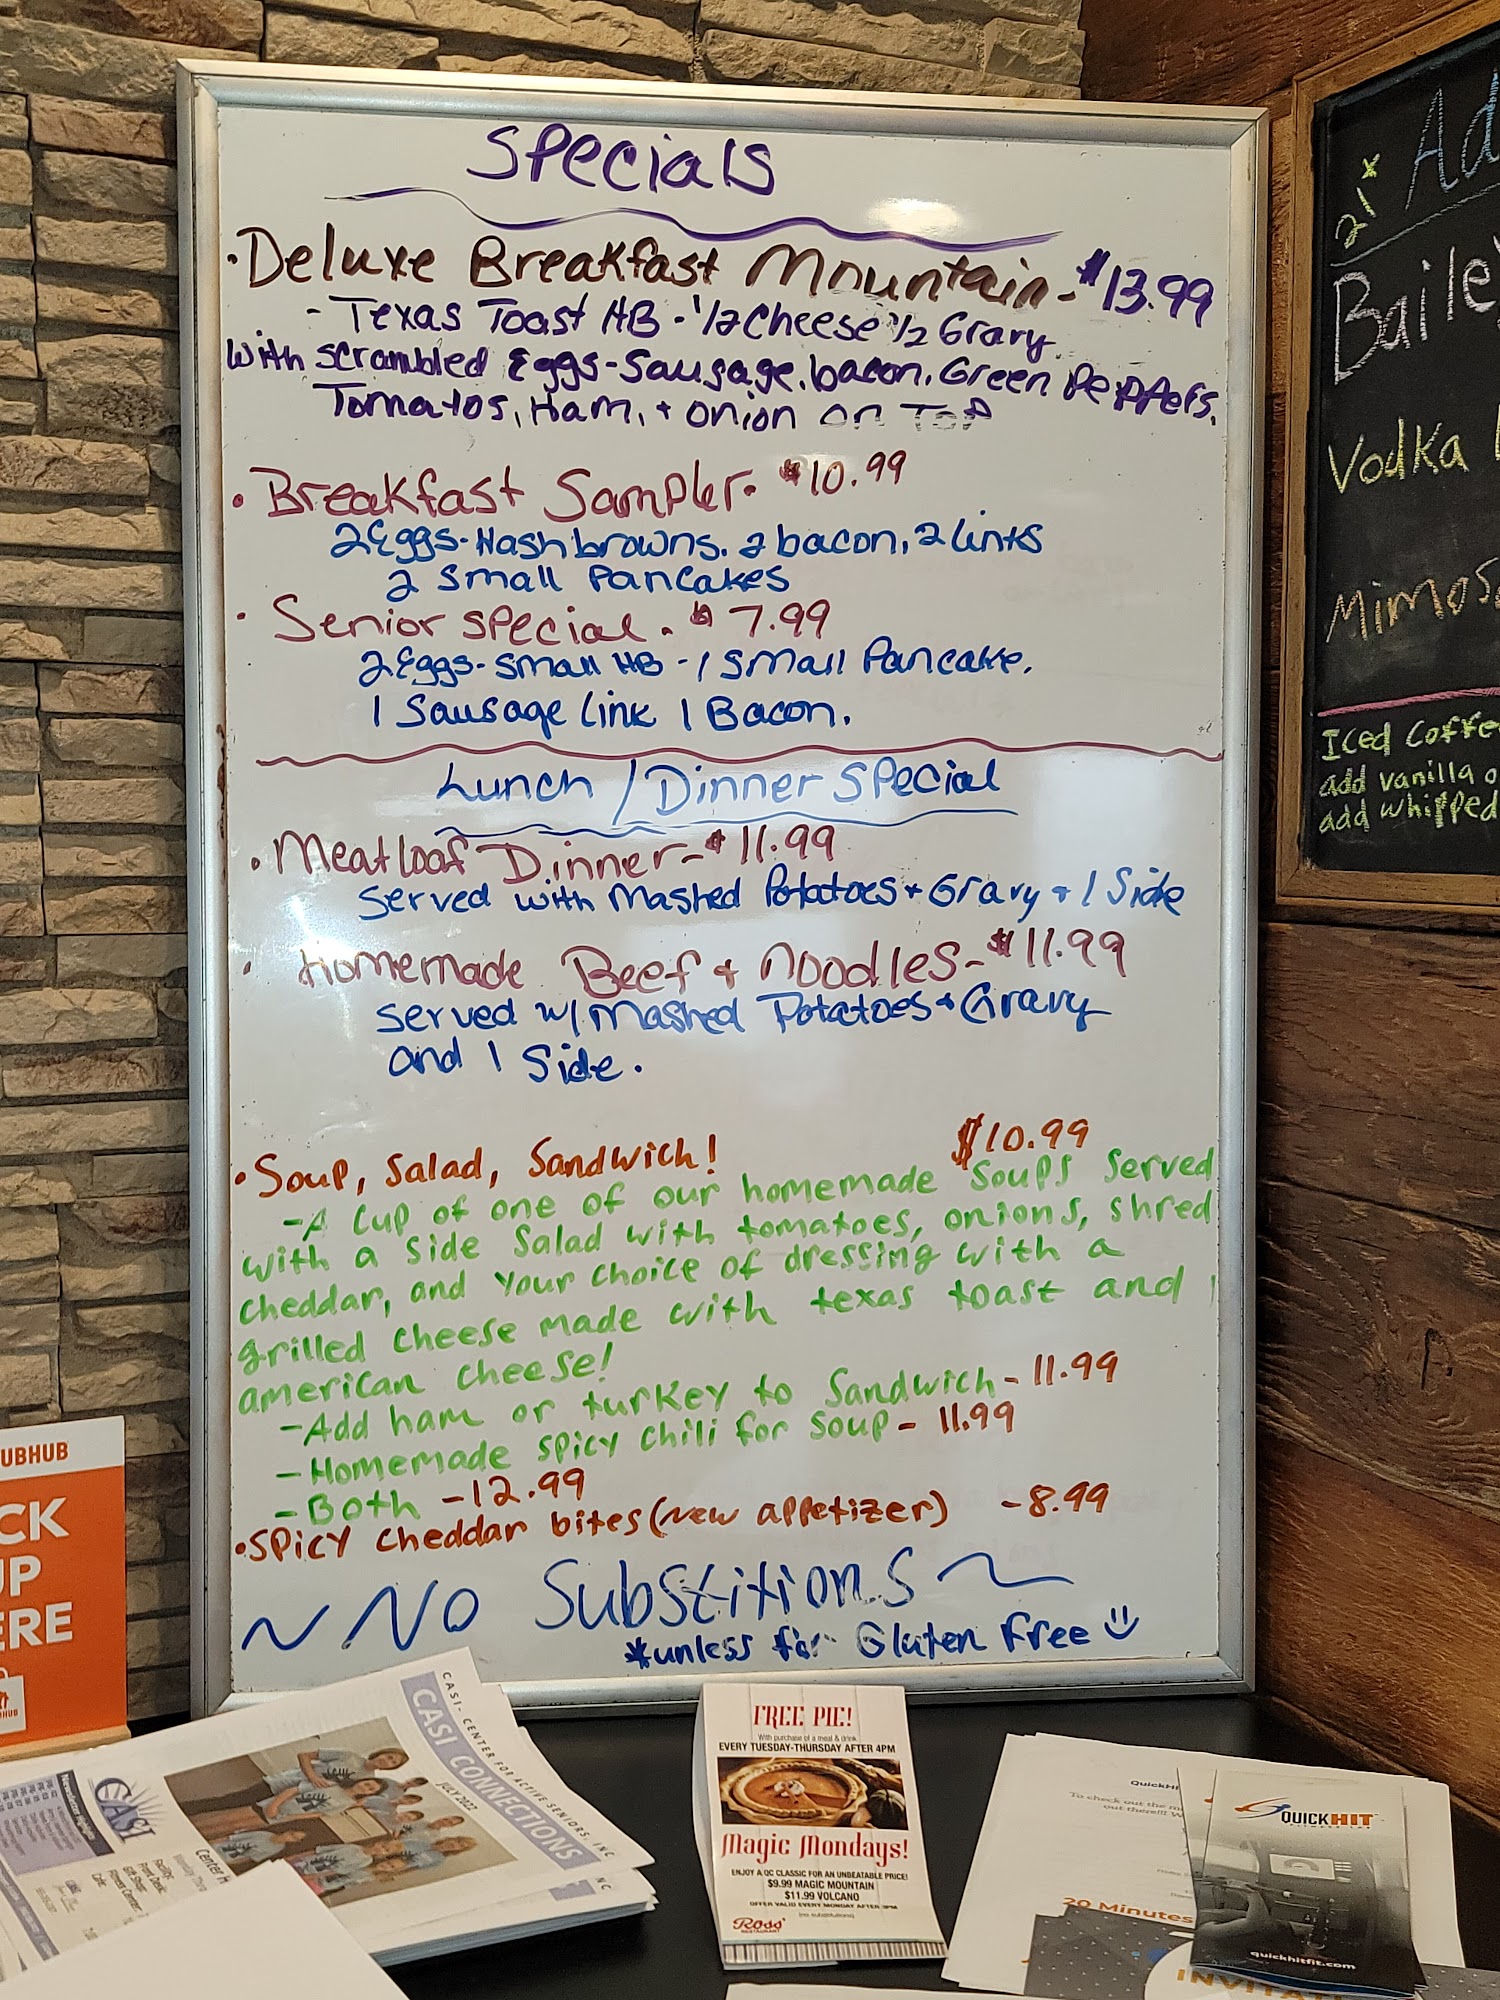 Specials
• Deluxe Breakfast Mountain - $13.99
- Texas Toast HB - 1/2 Cheese 1/2 Gravy
with scrambled Eggs - Sausage, bacon, Green Peppers,
Tomatos, Ham, + onion on Top
• Breakfast Sampler - $10.99
2 Eggs - Hashbrowns, 2 bacon, 2 links
2 small Pancakes
• Senior special - $7.99
2 Eggs - small HB - 1 small Pancake,
1 Sausage link 1 Bacon.
Lunch / Dinner Special
• Meatloaf Dinner - $11.99
served with Mashed Potatoes + Gravy + 1 Side
• Homemade Beef + noodles - $11.99
served w/ Mashed Potatoes + Gravy
and 1 Side.
• Soup, Salad, Sandwich! $10.99
- A cup of one of our homemade soups served
with a side salad with tomatoes, onions, shred
cheddar, and your choice of dressing with a
grilled cheese made with texas toast and
american cheese!
- Add ham or turkey to sandwich - 11.99
- Homemade spicy chili for soup - 11.99
- Both - 12.99
• Spicy cheddar bites (new appetizer) - 8.99
~ No Substitions ~
*unless for Gluten Free
21+
Vodka
Iced Coffe
add vanilla
add whipped
UBHUB
CK
UP
ERE
CASI - CENTER FOR ACTIVE SENIORS, INC
CASI CONNECTIONS
JULY 2022
CASI
FREE PIE!
With purchase of a meal & drink
EVERY TUESDAY-THURSDAY AFTER 4PM
Magic Mondays!
ENJOY A QC CLASSIC FOR AN UNBEATABLE PRICE!
$9.99 MAGIC MOUNTAIN
$11.99 VOLCANO
OFFER VALID EVERY MONDAY AFTER 3PM
(no substitutions)
Ross'
RESTAURANT
QuickHi
To check out the m
out there!!! W
20 Minutes
QUICKHIT
FITNESS LAB
quickhitfit.com
INVITA